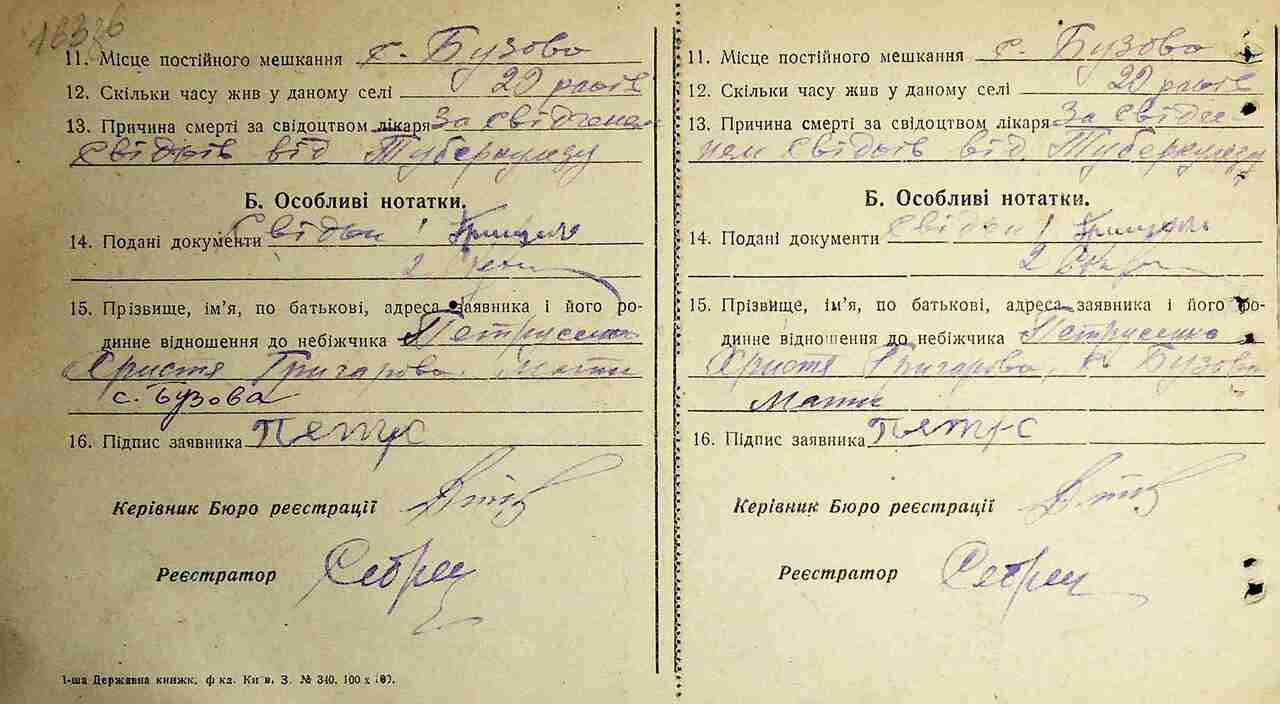 11. Місце постійного мешкання с. Бузова
12. Скільки часу жив у даному селі 20 років
13. Причина смерті за свідоцтвом лікаря За
свідків від Туберкульозу
Б. Особливі нотатки.
14. Подані документи Свідки
2
15. Прізвище, ім'я, по батькові, адреса заявника і його ро-
динне відношення до небіжчика
Христя Григорова мати
с. Бузова
16. Підпис заявника Петрус
Керівник Бюро реєстрації
Реєстратор
1-ша Державна книжк. ф-ка. Київ. З. № 340. 100 х 100.
11. Місце постійного мешкання с. Бузова
12. Скільки часу жив у даному селі 20 років
13. Причина смерті за свідоцтвом лікаря За свідче-
нем свідків від Туберкульозу
Б. Особливі нотатки.
14. Подані документи Свідки
2
15. Прізвище, ім'я, по батькові, адреса заявника і його ро-
динне відношення до небіжчика
Христя Григорова, с. Бузова
Мати
16. Підпис заявника Петрус
Керівник Бюро реєстрації
Реєстратор